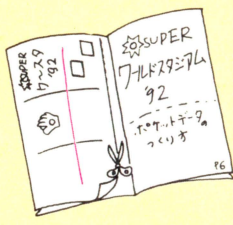 SUPER
ワ〜スタ
'92
SUPER
ワールドスタジアム
'92
ポケットデータの
つくり方
P6